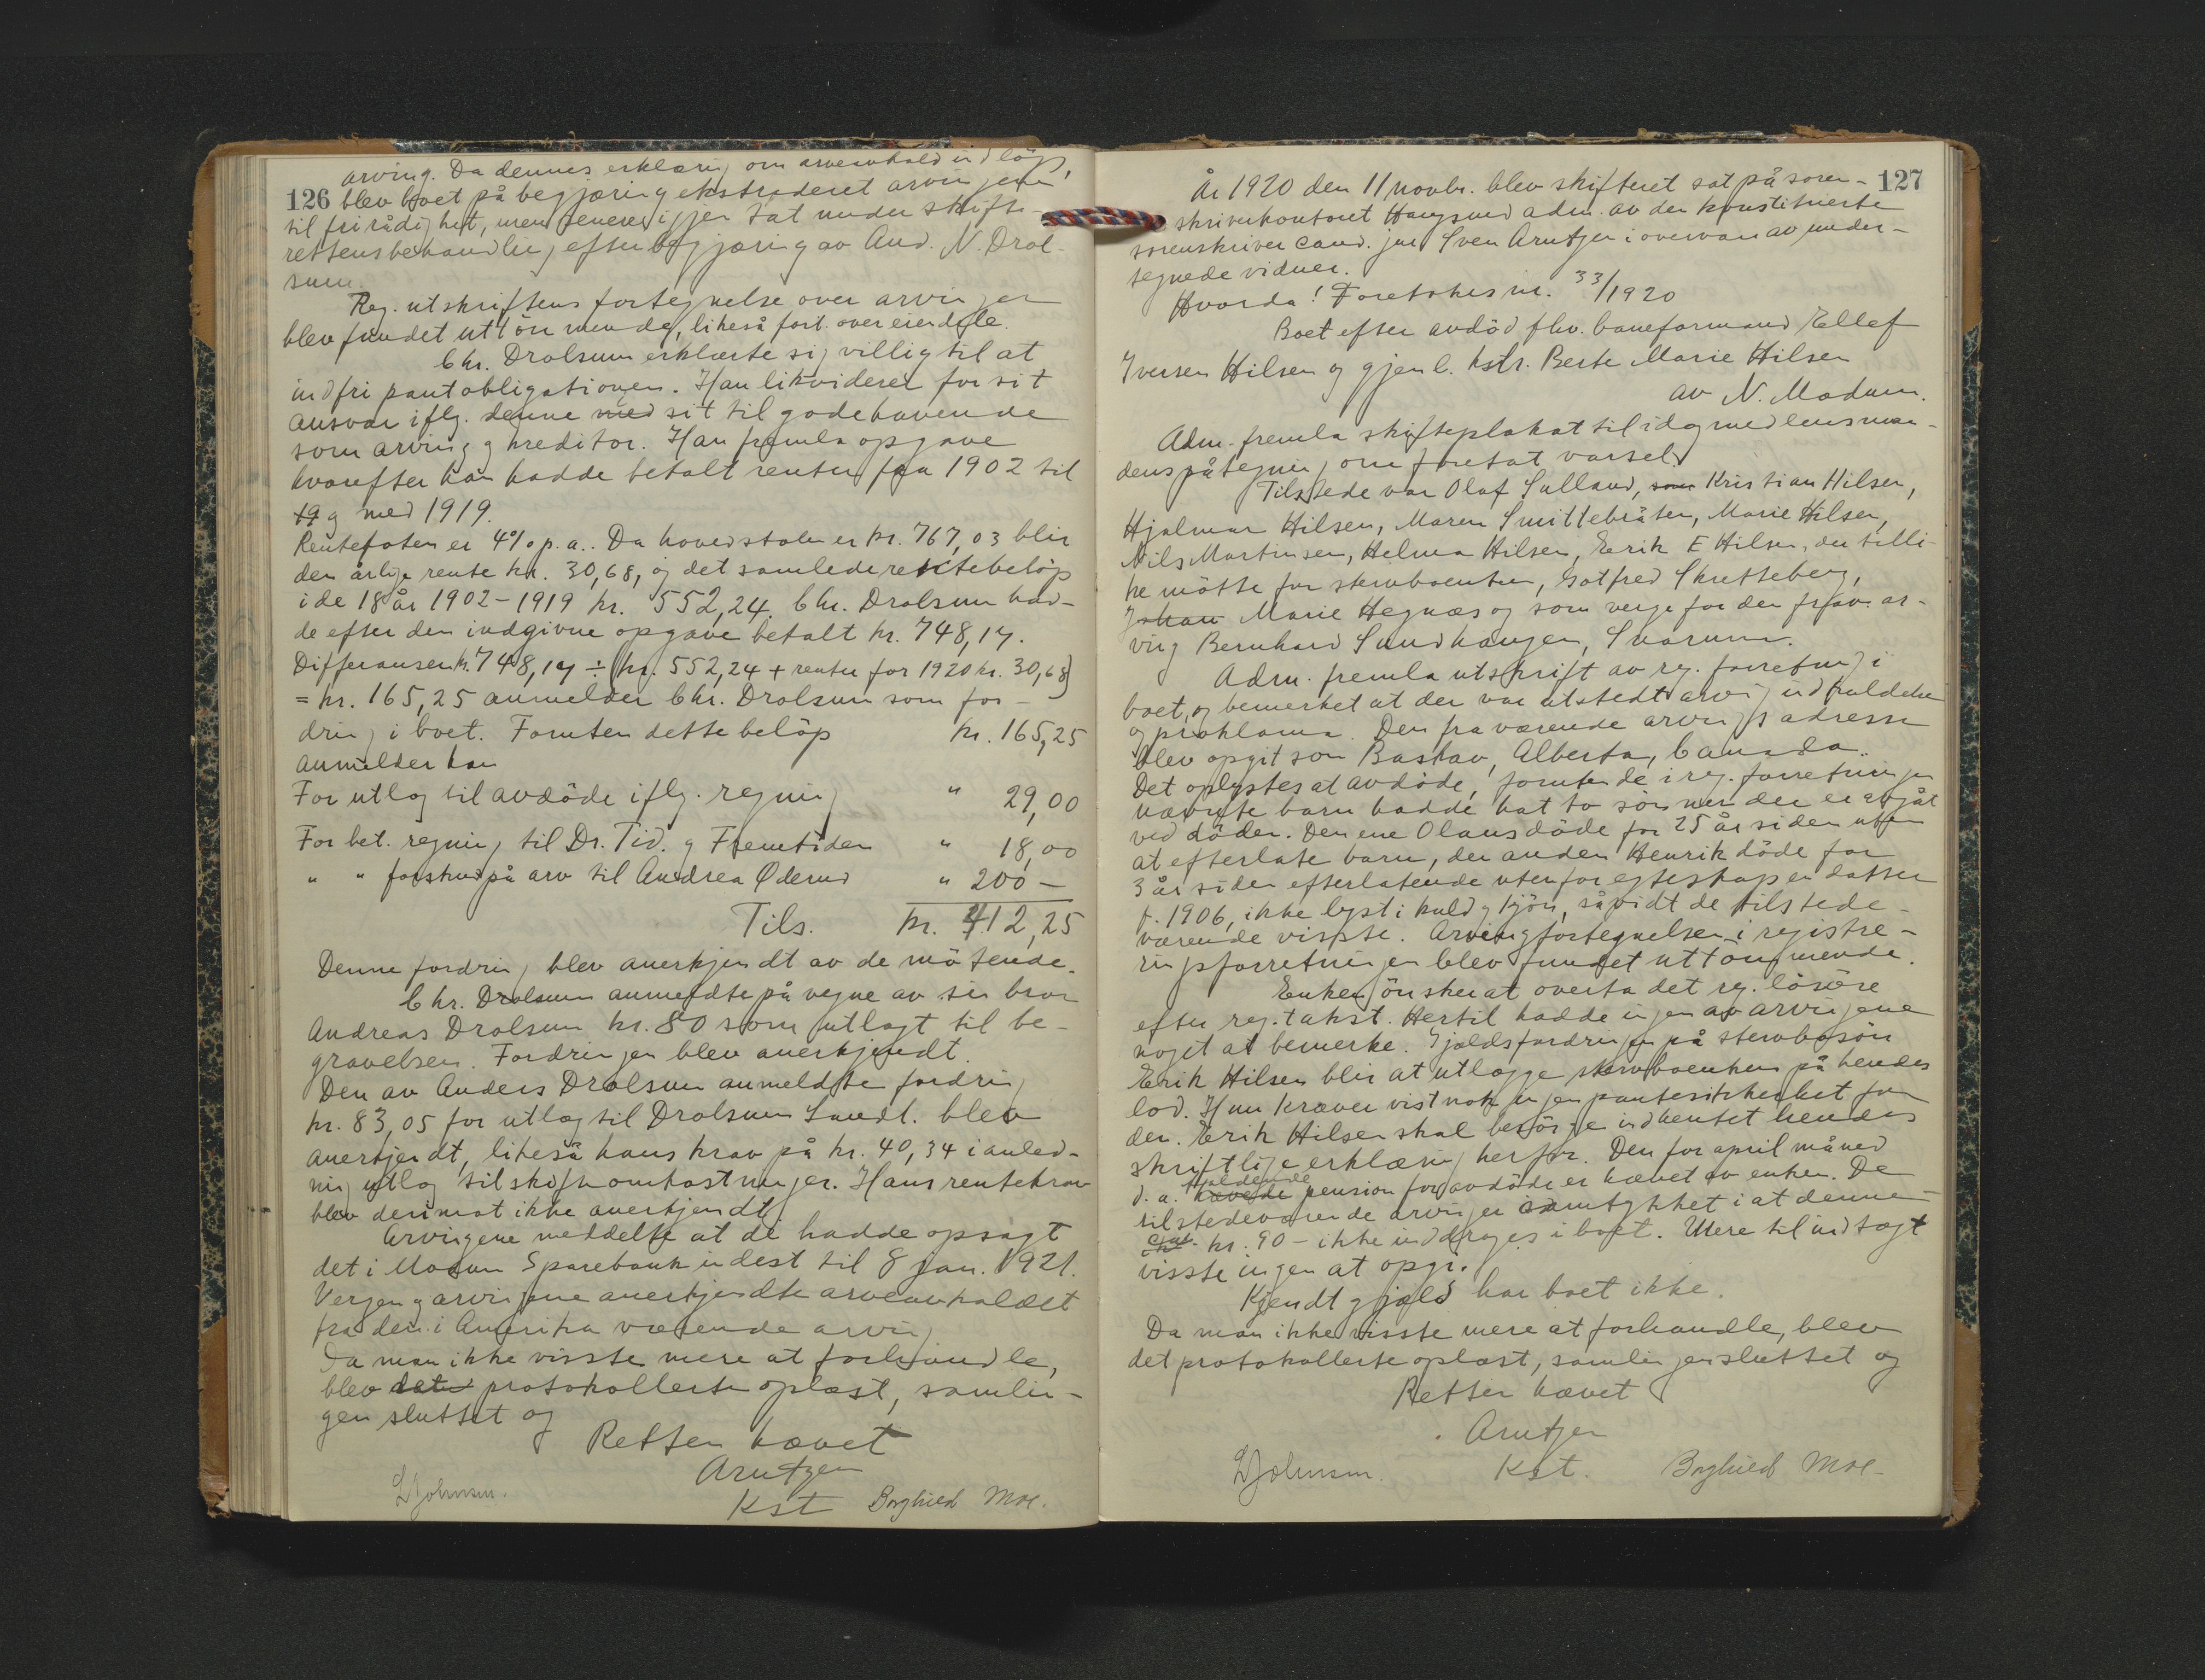 126
arving. Da dennes erklæring om arveavkald indløp,
blev boet på begjæring ekstraderet arvingene
til fri rådighet, men senere igjen tat under skifte-
rettens behandling efter begjæring av And. N. Drol-
sum.
Reg. utskriftens fortegnelse over arvinger
blev fundet uttömmende, likeså fort. over eiendele.
Chr. Drolsum erklærte sig villig til at
indfri pantobligationen. Han likviderer for sit
ansvar iflg. denne med sit tilgodehavende
som arving og kreditor. Han fremla opgave
hvorefter han hadde betalt renter fra 1902 til
19 og med 1919.
Rentefoten er 4% p.a.. Da hovedstolen er kr. 767,03 blir
den årlige rente kr. 30,68, og det samlede rentebelöp
i de 18 år 1902-1919 kr. 552,24. Chr. Drolsum had-
de efter den indgivne opgave betalt kr. 748,17.
Differansen kr. 748,17 ÷ (kr. 552,24 + renter for 1920 kr. 30,68)
= kr. 165,25 anmelder Chr. Drolsum som for-
dring i boet. Foruten dette belöp kr. 165,25
anmelder han
For utlæg til avdöde iflg. regning " 29,00
For bet. regning til Dr. Tid. og Fremtiden " 18,00
" " forskud på arv til Andrea Øderud " 200 -
Tils. kr. 412,25
Denne fordring blev anerkjendt av de mötende.
Chr. Drolsum anmeldte på vegne av sin bror
Andreas Drolsum kr. 80 som utlagt til be-
gravelsen. Fordringen blev anerkjendt.
Den av Anders Drolsum anmeldte fordring
kr. 83,05 for utlæg til Drolsum Landh. blev
anerkjendt, likeså hans krav på kr. 40,34 i anled-
ning utlæg til skifteomkostninger. Hans rentekrav
blev derimot ikke anerkjendt.
Arvingene meddelte at de hadde opsagt
det i Modum Sparebank indest. til 8 jan. 1921.
Vergen og arvingene anerkjendte arveavkaldet
fra den i Amerika værende arving.
Da man ikke visste mere at forhandle,
blev det protokollerte oplæst, samlin-
gen sluttet og
Retten hævet
Arntzen
Kst
L Johnsen.
Borghild Moe.
127
År 1920 den 11 novbr. blev skifteret sat på soren-
skriverkontoret Haugsund adm. av den konstituerte
sorenskriver cand. jur. Sven Arntzen i overvær av under-
tegnede vidner.
Hvorda! Foretokes nr. 33/1920
Boet efter avdöd fhv. baneformand Ellef
Iversen Hilsen og gjenl. hstr. Berte Marie Hilsen
av N. Modum.
Adm. fremla skifteplakat til idag med lensman-
dens påtegning om foretat varsel.
Tilstede var Olaf Sulland, som Kristian Hilsen,
Hjalmar Hilsen, Maren Smittebråten, Marie Hilsen,
Nils Martinsen, Helma Hilsen, Erik E Hilsen, der tilli-
ke mötte for stervboenken, Gotfred Skretteberg,
Johan Marie Hegnæs og som verge for den frav. ar-
ving Bernhard Sundhaugen, Snarum.
Adm. fremla utskrift av reg. forretning i
boet, og bemerket at der var utstedt arvinginkaldelse
og proklama. Den fraværende arvings adresse
blev opgit som Bashaw, Alberta, Canada.
Det oplystes at avdöde, foruten de i reg. forretningen
nævnte barn hadde hat to sönner der er avgåt
ved döden. Den ene Olaus döde for 25 år siden uten
at efterlate barn, den anden Henrik döde for
3 år siden efterlatende utenfor egteskap en datter
f. 1906, ikke lyst i kuld og kjön, såvidt de tilstede-
værende visste. Arvingfortegnelsen i registre-
ringsforretningen blev fundet uttömmende.
Enken önsker at overta det reg. lösöre
efter reg. takst. Hertil hadde ingen av arvingene
noget at bemerke. Gjældsfordringen på stervbosön
Erik Hilsen blir at utlægge stervboenken på hendes
lod. Hun kræver vistnok ingen pantesikkerhet for
den. Erik Hilsen skal besörge indhentet hendes
skriftlige erklæring herfor. Den for april måned
d.a. hævede gjældende pension for avdöde er hævet av enken. De
tilstedeværende arvinger samtykket i at denne
ca. kr. 90 - ikke inddrages i boet. Mere til indtægt
visste ingen at opgi.
Kjendt gjæld har boet ikke.
Da man ikke visste mere at forhandle, blev
det protokollerte oplæst, samlingen sluttet og
Retten hævet
Arntzen
Kst.
L Johnsen.
Borghild Moe.